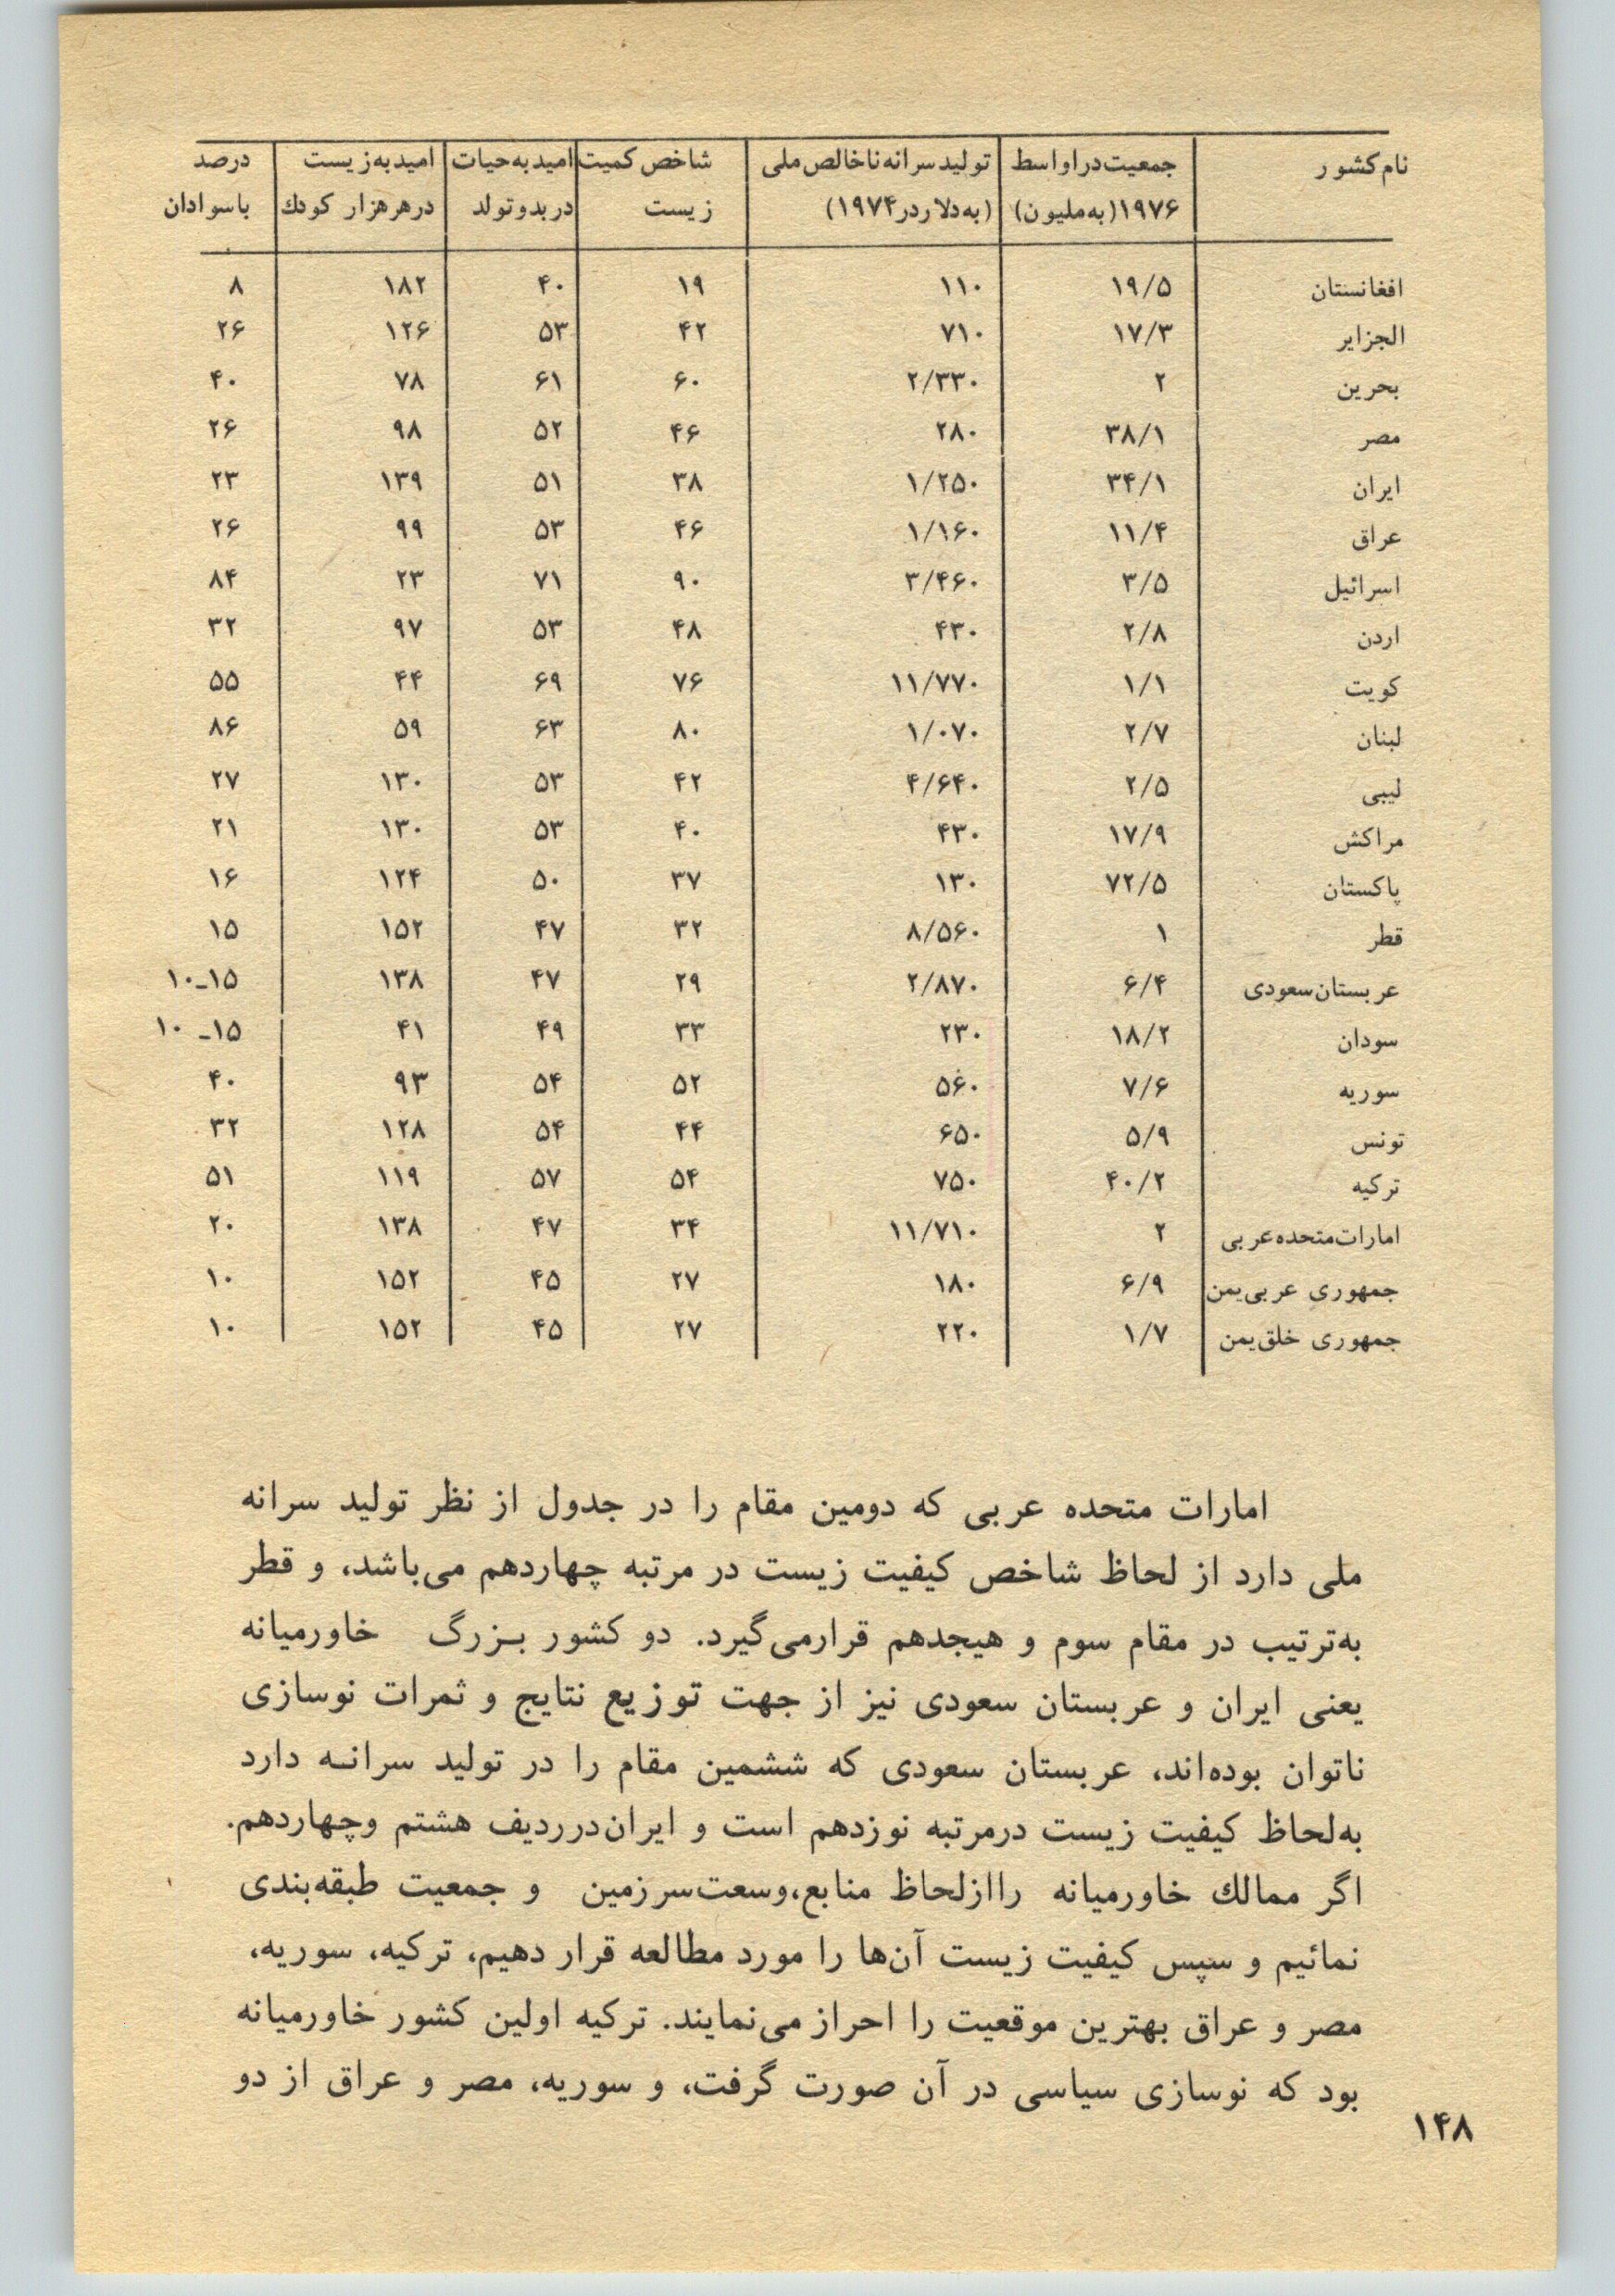 نام کشور	جمعیت در اواسط	تولید سرانه ناخالص ملی	شاخص کمیت	امید به حیات	امید به زیست	درصد
۱۹۷۶ (به میلیون)	(به دلار در ۱۹۷۴)	زیست	در بدو تولد	در هر هزار کودك	باسوادان
افغانستان	۱۹/۵	۱۱۰	۱۹	۴۰	۱۸۲	۸
الجزایر	۱۷/۳	۷۱۰	۴۲	۵۳	۱۲۶	۲۶
بحرین	۲	۲/۳۳۰	۶۰	۶۱	۷۸	۴۰
مصر	۳۸/۱	۲۸۰	۴۶	۵۲	۹۸	۲۶
ایران	۳۴/۱	۱/۲۵۰	۳۸	۵۱	۱۳۹	۲۳
عراق	۱۱/۴	۱/۱۶۰	۴۶	۵۳	۹۹	۲۶
اسرائیل	۳/۵	۳/۴۶۰	۹۰	۷۱	۲۳	۸۴
اردن	۲/۸	۴۳۰	۴۸	۵۳	۹۷	۳۲
کویت	۱/۱	۱۱/۷۷۰	۷۶	۶۹	۴۴	۵۵
لبنان	۲/۷	۱/۰۷۰	۸۰	۶۳	۵۹	۸۶
لیبی	۲/۵	۴/۶۴۰	۴۲	۵۳	۱۳۰	۲۷
مراکش	۱۷/۹	۴۳۰	۴۰	۵۳	۱۳۰	۲۱
پاکستان	۷۲/۵	۱۳۰	۳۷	۵۰	۱۲۴	۱۶
قطر	۱	۸/۵۶۰	۳۲	۴۷	۱۵۲	۱۵
عربستان سعودی	۶/۴	۲/۸۷۰	۲۹	۴۷	۱۳۸	۱۵ـ۱۰
سودان	۱۸/۲	۲۳۰	۳۳	۴۹	۴۱	۱۵ـ ۱۰
سوریه	۷/۶	۵۶۰	۵۲	۵۴	۹۳	۴۰
تونس	۵/۹	۶۵۰	۴۴	۵۴	۱۲۸	۳۲
ترکیه	۴۰/۲	۷۵۰	۵۴	۵۷	۱۱۹	۵۱
امارات متحده عربی	۲	۱۱/۷۱۰	۳۴	۴۷	۱۳۸	۲۰
جمهوری عربی یمن	۶/۹	۱۸۰	۲۷	۴۵	۱۵۲	۱۰
جمهوری خلق یمن	۱/۷	۲۲۰	۲۷	۴۵	۱۵۲	۱۰
امارات متحده عربی که دومین مقام را در جدول از نظر تولید سرانه
ملی دارد از لحاظ شاخص کیفیت زیست در مرتبه چهاردهم می‌باشد، و قطر
به‌ترتیب در مقام سوم و هیجدهم قرارمی‌گیرد. دو کشور بـزرگ خاورمیانه
یعنی ایران و عربستان سعودی نیز از جهت توزیع نتایج و ثمرات نوسازی
ناتوان بوده‌اند، عربستان سعودی که ششمین مقام را در تولید سرانـه دارد
به‌لحاظ کیفیت زیست درمرتبه نوزدهم است و ایران درردیف هشتم وچهاردهم.
اگر ممالك خاورمیانه راازلحاظ منابع،وسعت سرزمین و جمعیت طبقه‌بندی
نمائیم و سپس کیفیت زیست آن‌ها را مورد مطالعه قرار دهیم، ترکیه، سوریه،
مصر و عراق بهترین موقعیت را احراز می‌نمایند. ترکیه اولین کشور خاورمیانه
بود که نوسازی سیاسی در آن صورت گرفت، و سوریه، مصر و عراق از دو
۱۴۸